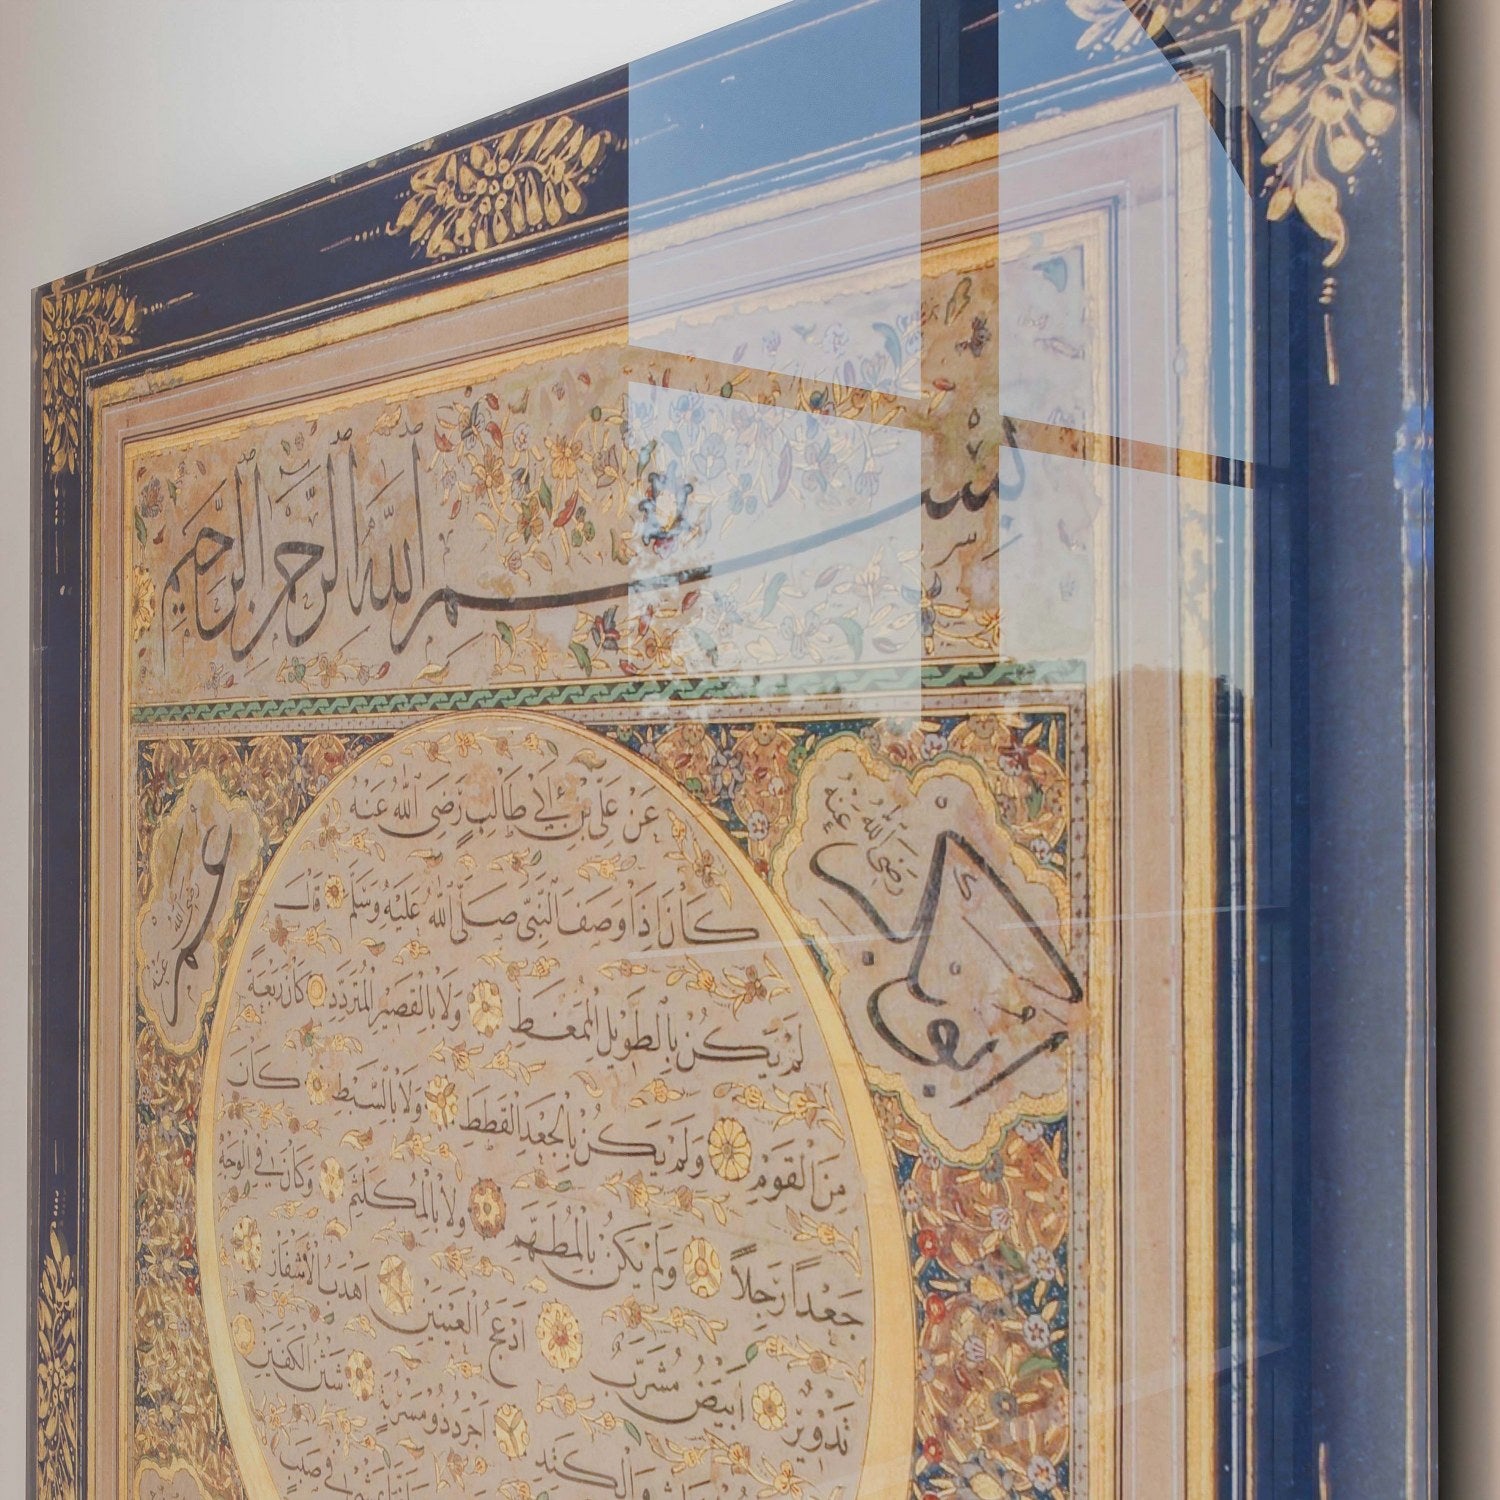 بِسْمِ اللهِ الرَّحْمٰنِ الرَّحِيمِ
ابوبكر
رضي الله عنه
عمر
رضي الله عنه
عَنْ عَلِيِّ بْنِ اَبِي طَالِبٍ رَضِيَ اللهُ عَنْهُ
كَانَ اِذَا وَصَفَ النَّبِيَّ صَلَّى اللهُ عَلَيْهِ وَسَلَّمَ قَالَ
لَمْ يَكُنْ بِالطَّوِيلِ الْمُمَّغِطِ وَلَا بِالْقَصِيرِ الْمُتَرَدِّدِ كَانَ رَبْعَةً
مِنَ الْقَوْمِ وَلَمْ يَكُنْ بِالْجَعْدِ الْقَطَطِ وَلَا بِالسَّبْطِ كَانَ
جَعْدًا رَجِلًا وَلَمْ يَكُنْ بِالْمُطَهَّمِ وَلَا بِالْمُكَلْثَمِ وَكَانَ فِي الْوَجْهِ
تَدْوِيرٌ اَبْيَضُ مُشْرَبٌ اَدْعَجُ الْعَيْنَيْنِ اَهْدَبُ الْاَشْفَارِ
وَالْكَتَدِ اَجْرَدُ ذُو مَسْرُبَةٍ شَثْنُ الْكَفَّيْنِ
فِي صَبَبٍ